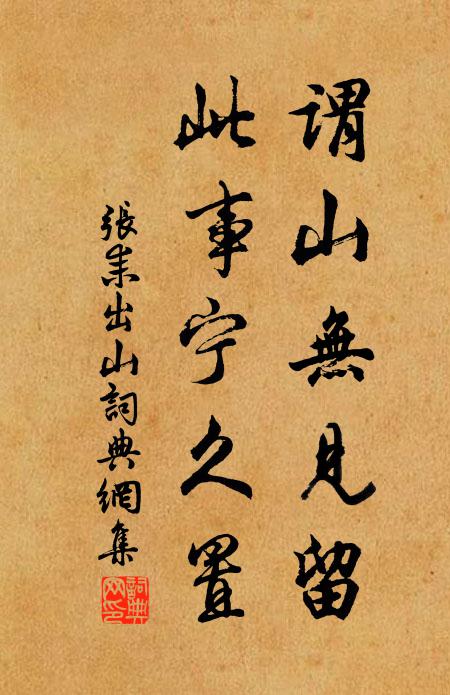 謂山無見留
此事宁久置
張耒出山詞典網集
詞典網印